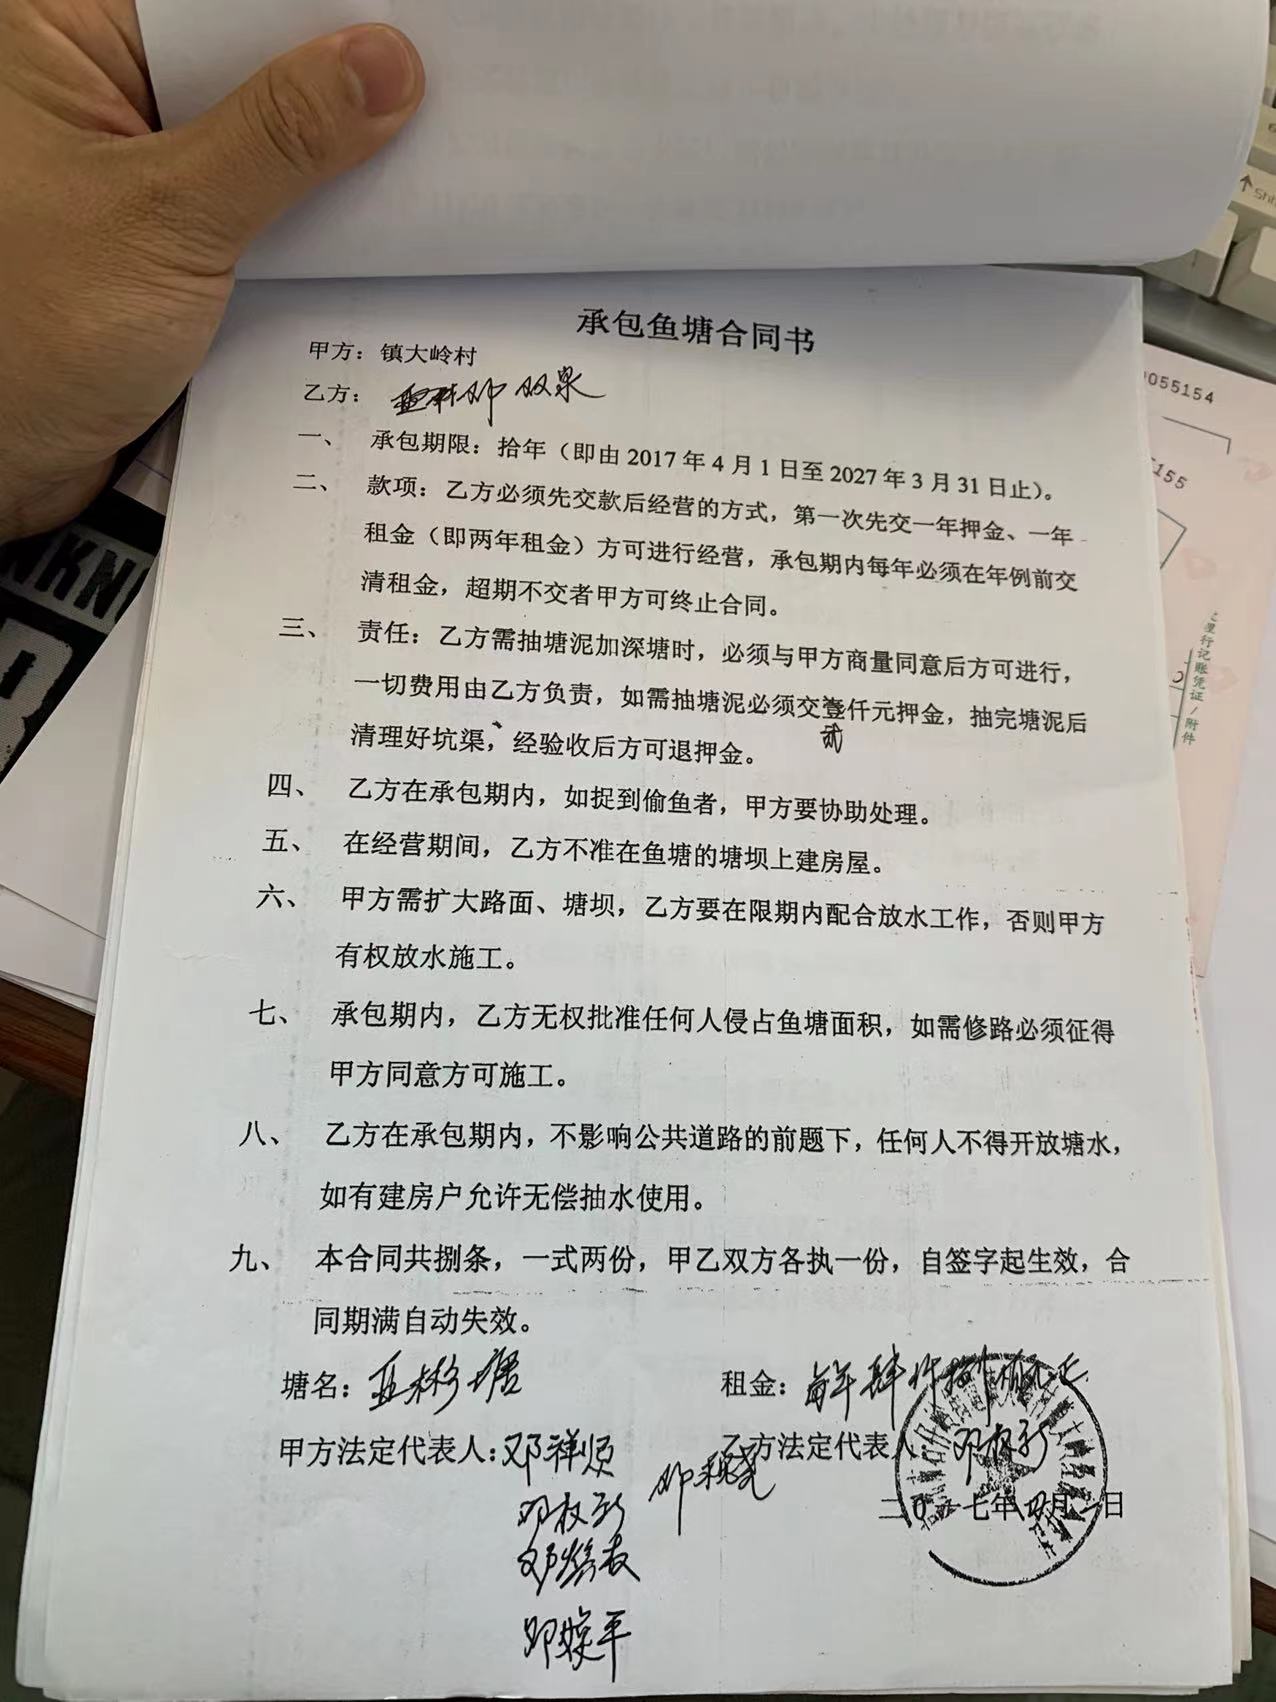 承包鱼塘合同书
甲方：镇大岭村
乙方： 邓双泉
一、 承包期限：拾年（即由 2017 年 4 月 1 日至 2027 年 3 月 31 日止）。
二、 款项：乙方必须先交款后经营的方式，第一次先交一年押金、一年
租金（即两年租金）方可进行经营，承包期内每年必须在年例前交
清租金，超期不交者甲方可终止合同。
三、 责任：乙方需抽塘泥加深塘时，必须与甲方商量同意后方可进行，
一切费用由乙方负责，如需抽塘泥必须交壹仟元押金，抽完塘泥后
贰
清理好坑渠，经验收后方可退押金。
四、 乙方在承包期内，如捉到偷鱼者，甲方要协助处理。
五、 在经营期间，乙方不准在鱼塘的塘坝上建房屋。
六、 甲方需扩大路面、塘坝，乙方要在限期内配合放水工作，否则甲方
有权放水施工。
七、 承包期内，乙方无权批准任何人侵占鱼塘面积，如需修路必须征得
甲方同意方可施工。
八、 乙方在承包期内，不影响公共道路的前题下，任何人不得开放塘水，
如有建房户允许无偿抽水使用。
九、 本合同共捌条，一式两份，甲乙双方各执一份，自签字起生效，合
同期满自动失效。
塘名：亚彬塘 租金：每年肆仟
甲方法定代表人：邓祥顺 乙方法定代表人 邓权新
二0一七年四月一日
邓权新
055154
155
行记账凭证/附件
Shift